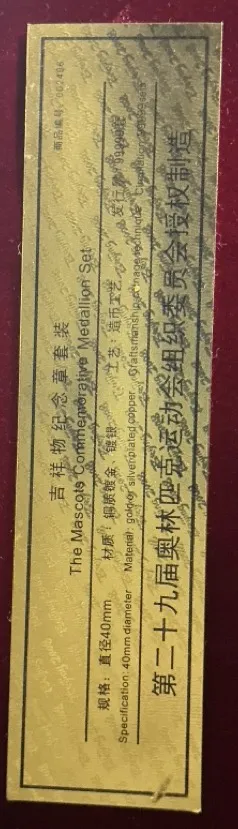 商品编号:002406
吉祥物纪念章套装
The Mascots Commemorative Medallion Set
规格:直径40mm 材质:铜质镀金 镀银 工艺:造币工艺 发行量:
Specification: 40mm diameter Material: gold or silver plated copper Craftsmanship: Circulation:
第二十九届奥林匹克运动会组织委员会授权制造